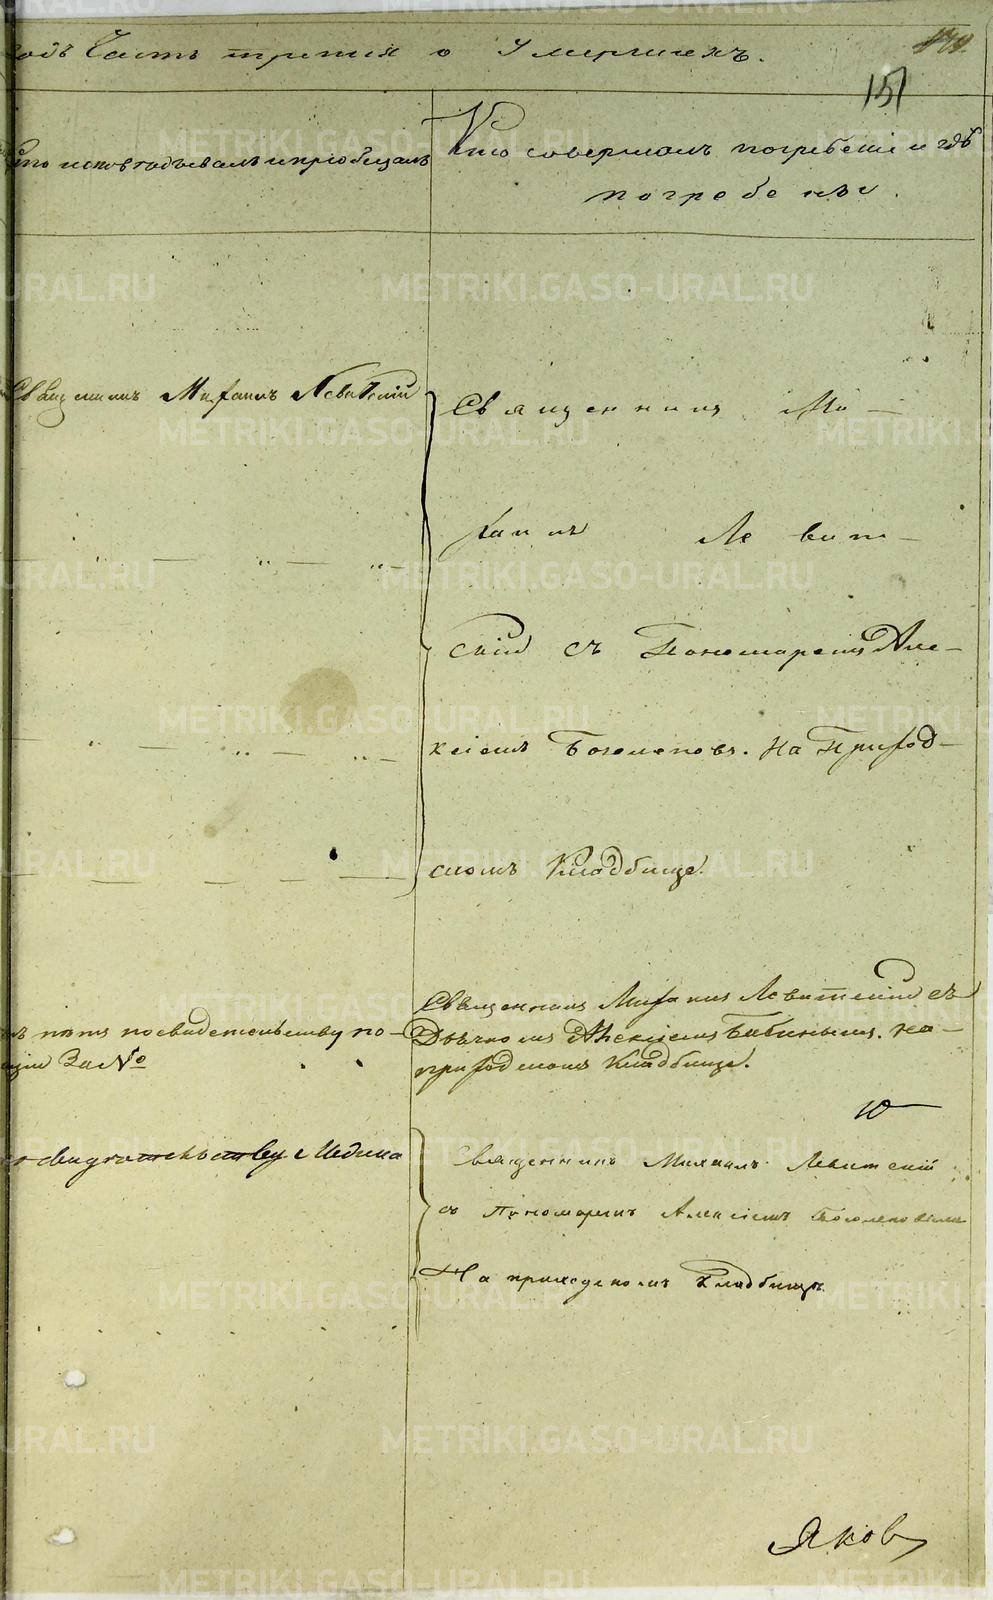 годъ Часть третия о Умершихъ.
151
Кто исповѣдывалъ и приобщалъ
Кто совершалъ погребение и гдѣ
погребены.
Священникъ Михаилъ Левитскій
Священникъ Ми-
хаилъ Левит-
скій съ Пономаремъ Але-
ксіемъ Боголеповъ. На Приход-
скомъ Кладбище.
Священникъ Михаилъ Левитскій съ
Дьячкомъ Алексіемъ Бабинымъ. на
приходскомъ Кладбище.
по свидетельству по-
лиціи За №
свидетельству Медика
Священникъ Михаилъ Левитскій
съ Пономаремъ Алексіемъ Боголеповымъ
На приходскомъ Кладбищѣ
Яковъ
METRIKI.GASO-URAL.RU